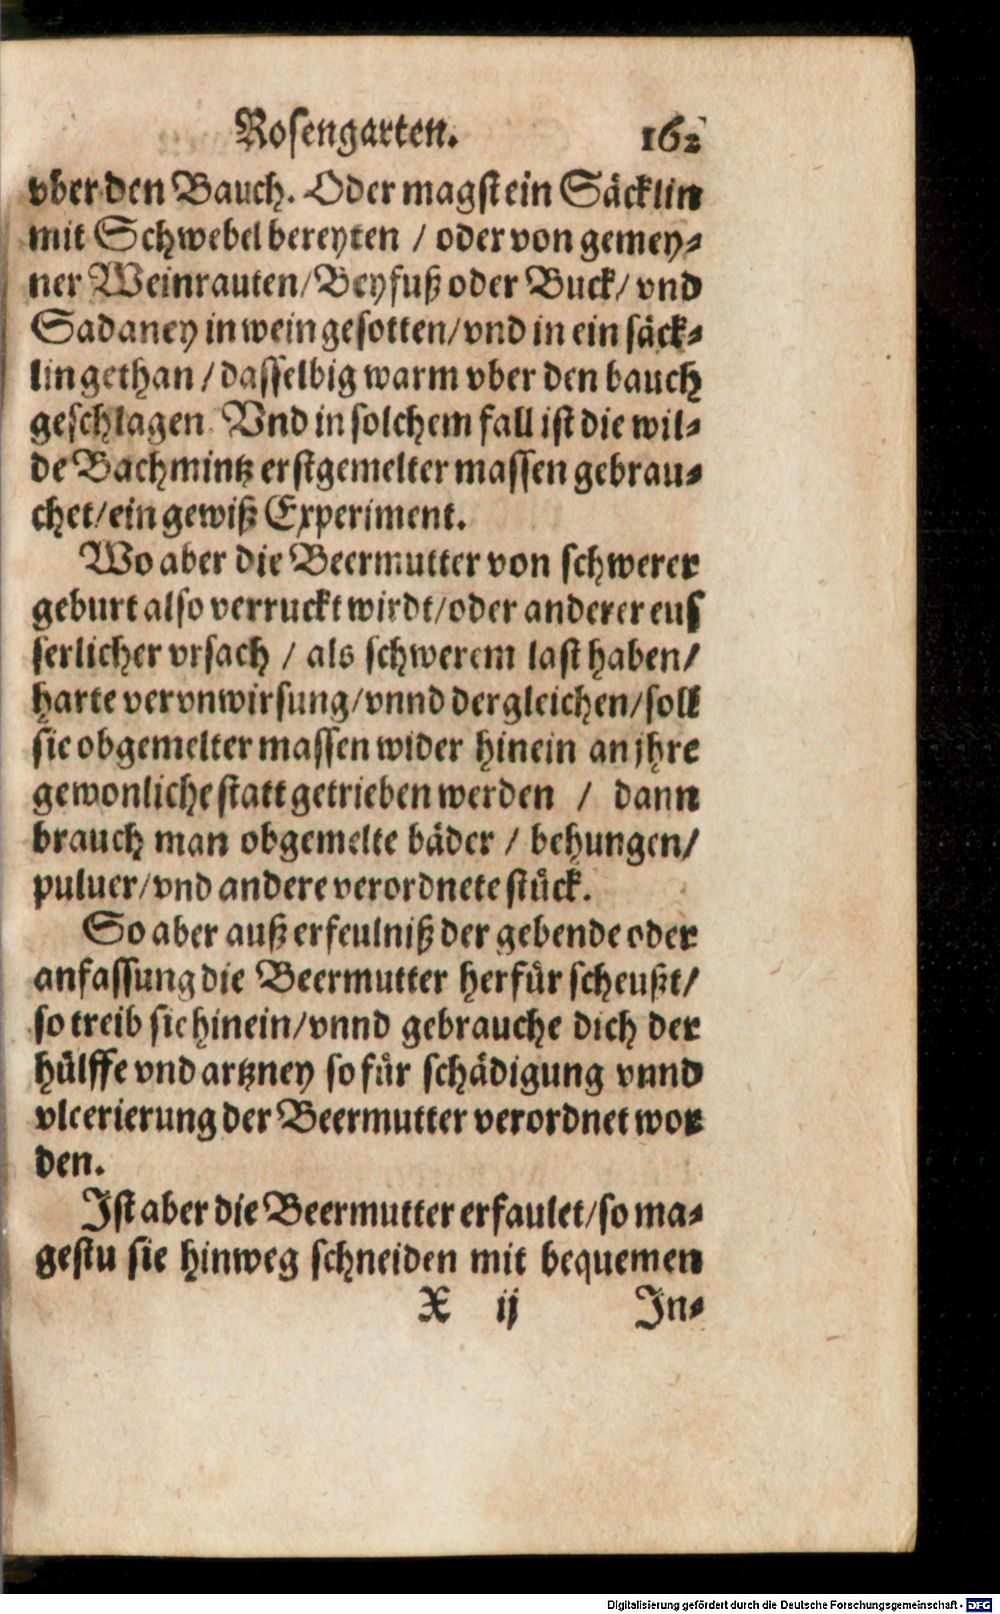 Rosengarten. 162
vber den Bauch. Oder magst ein Säcklin
mit Schwebel bereyten / oder von gemey⸗
ner Weinrauten/ Beyfuß oder Buck/ vnd
Sadaney in wein gesotten/ vnd in ein säck⸗
lin gethan / dasselbig warm vber den bauch
geschlagen Vnd in solchem fall ist die wil⸗
de Bachmintz erstgemelter massen gebrau⸗
chet/ ein gewiß Experiment.
Wo aber die Beermutter von schwerer
geburt also verruckt wirdt/ oder anderer eus
serlicher vrsach / als schwerem last haben/
harte vervnwirsung/ vnnd dergleichen/ soll
sie obgemelter massen wider hinein an jhre
gewonliche statt getrieben werden / dann
brauch man obgemelte bäder / behungen/
puluer/ vnd andere verordnete stück.
So aber auß erfeulniß der gebende oder
anfassung die Beermutter herfür scheußt/
so treib sie hinein/ vnnd gebrauche dich der
hülffe vnd artzney so für schädigung vnnd
vlcerierung der Beermutter verordnet wor
den.
Ist aber die Beermutter erfaulet/ so ma⸗
gestu sie hinweg schneiden mit bequemen
X ij In⸗
Digitalisierung gefördert durch die Deutsche Forschungsgemeinschaft - DFG